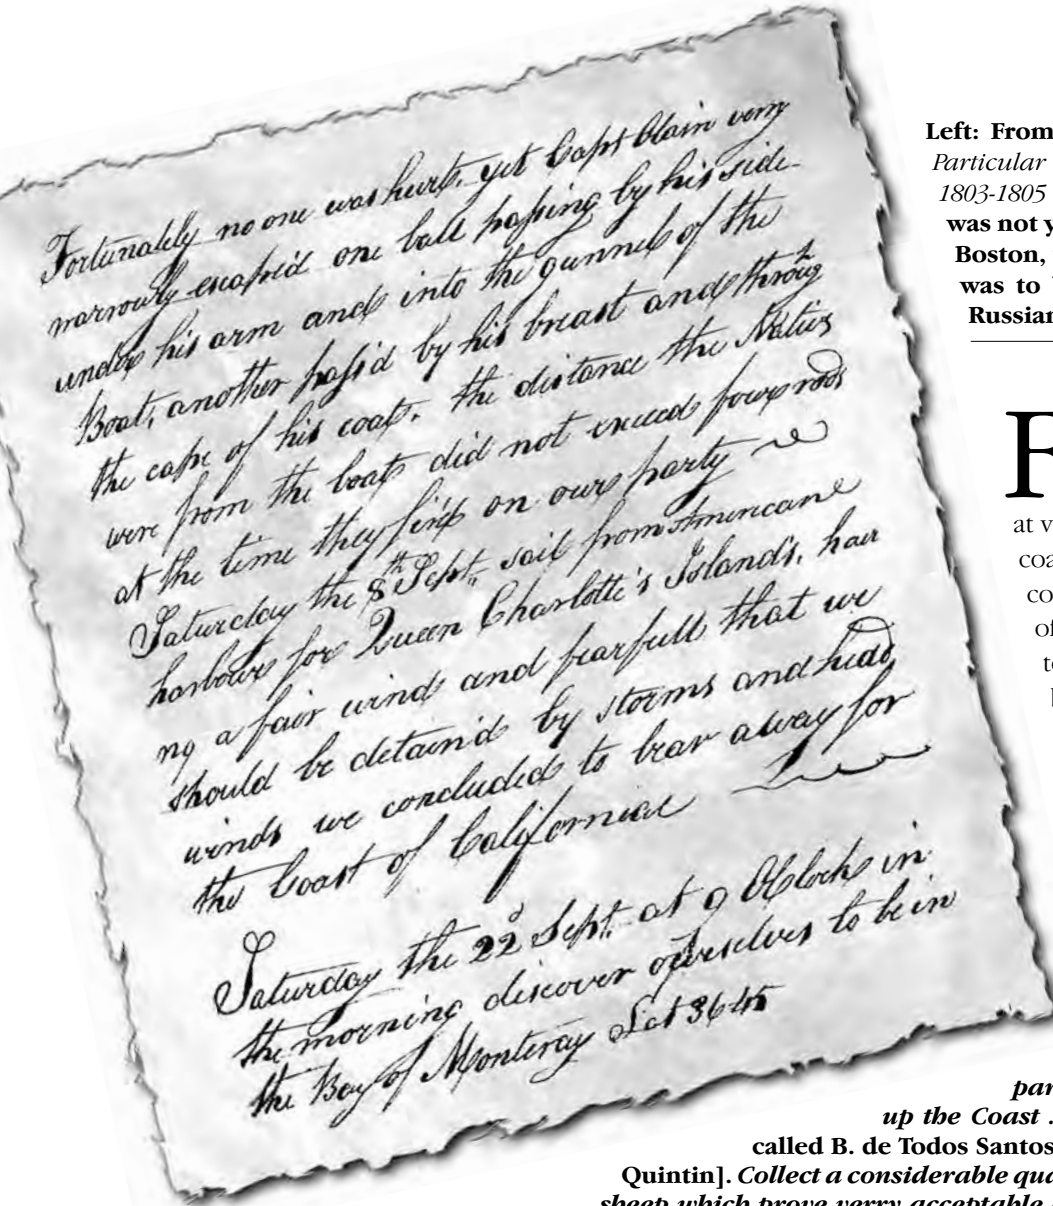 Fortunately no one was hurt. yet Capt Blain verry
narrowly escap'd one ball passing by his side
under his arm and into the gunnel of the
Boat, another pass'd by his breast and throug
the cape of his coat. the distance the Natives
were from the boat did not exceed four rods
at the time they fir'd on our party
Saturday the 8th Sept. sail from American
harbour for Queen Charlotte's Islands, havi
ng a fair wind and fearfull that we
should be detain'd by storms and head
winds we concluded to bear away for
the Coast of Californiae
Saturday the 22d Sept. at 9 OClock in
the morning discover ourselves to be in
the Bay of Monteray Lat 36 45
Left: From
Particular
1803-1805
was not y
Boston,
was to
Russian
R
at v
coa
co
of
to
par
up the Coast .
called B. de Todos Santos
Quintin]. Collect a considerable qua
sheep which prove verry acceptable